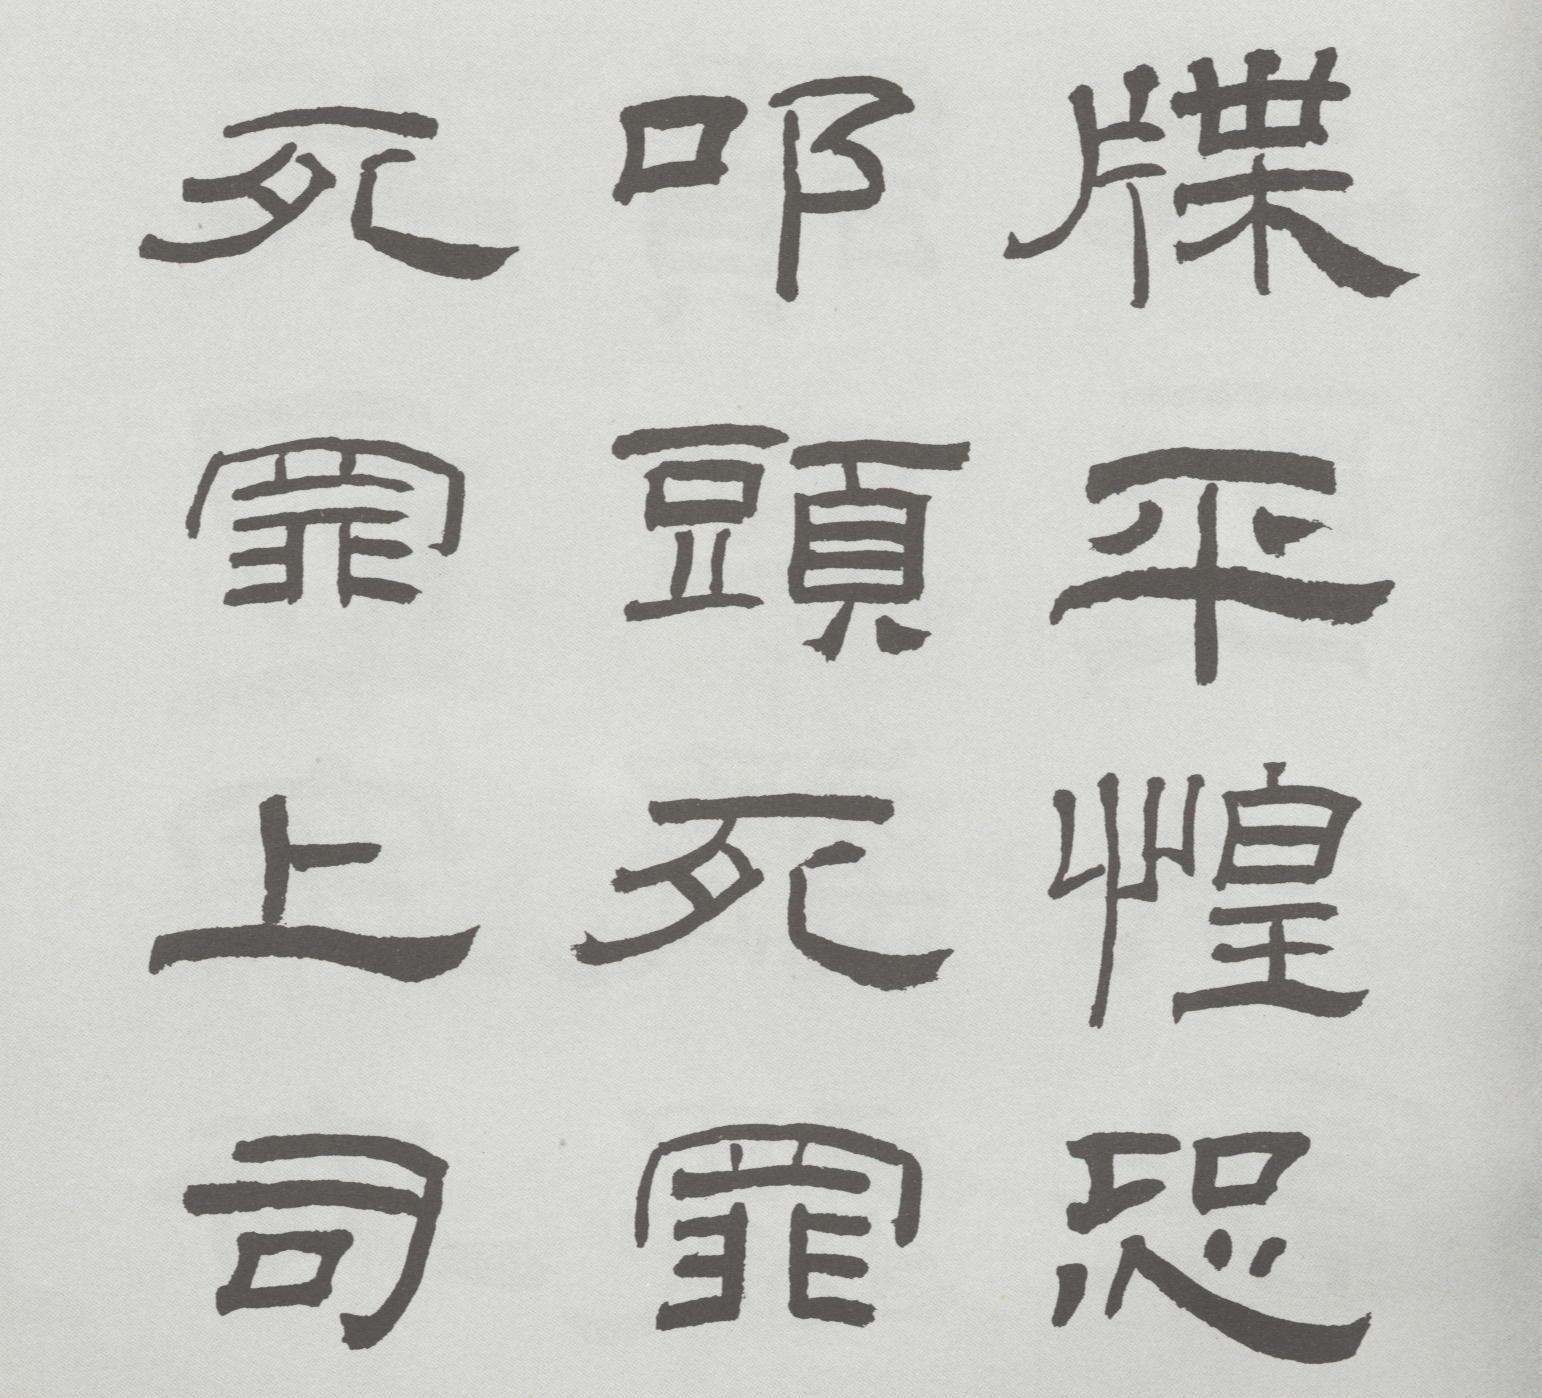 牒平惶恐
叩頭死罪
死罪上司